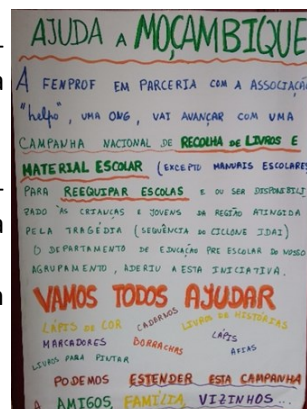 AJUDA A MOÇAMBIQUE
A FENPROF EM PARCERIA COM A ASSOCIAÇÃO
"helpo", UMA ONG, VAI AVANÇAR COM UMA
CAMPANHA NACIONAL DE RECOLHA DE LIVROS E
MATERIAL ESCOLAR (EXCEPTO MANUAIS ESCOLARES
PARA REEQUIPAR ESCOLAS E OU SER DISPONIBILI
ZADO ÀS CRIANÇAS E JOVENS DA REGIÃO ATINGIDA
PELA TRAGÉDIA (SEQUÊNCIA DO CICLONE IDAI)
O DEPARTAMENTO DE EDUCAÇÃO PRÉ ESCOLAR DO NOSSO
AGRUPAMENTO, ADERIU A ESTA INICIATIVA.
VAMOS TODOS AJUDAR
LÁPIS DE COR CADERNOS LIVROS DE HISTÓRIAS
MARCADORES BORRACHAS LÁPIS
LIVROS PARA PINTAR AFIAS
PODEMOS ESTENDER ESTA CAMPANHA
A AMIGOS, FAMÍLIA, VIZINHOS...